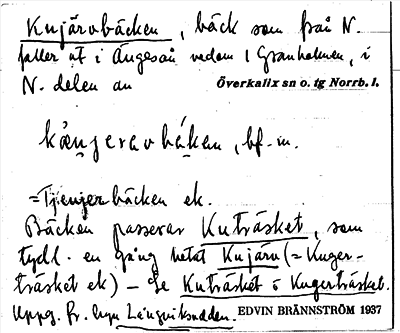 Kujärvbäcken, bäck som från N.
faller ut i Ängesån nedom 1 Granholmen, i
N. delen av Överkalix sn o. tg Norrb. l.
kåŋŋeravbäken, bf. m.
=Tjenjerbäcken ek.
Bäcken passerar Kuträsket, som
tydl. en gång hetat Kujärv (=Kuger-
träsket ek) – Se Kuträsket o Kugerträsket.
Uppg. fr. byn Långviksudden. EDVIN BRÄNNSTRÖM 1937